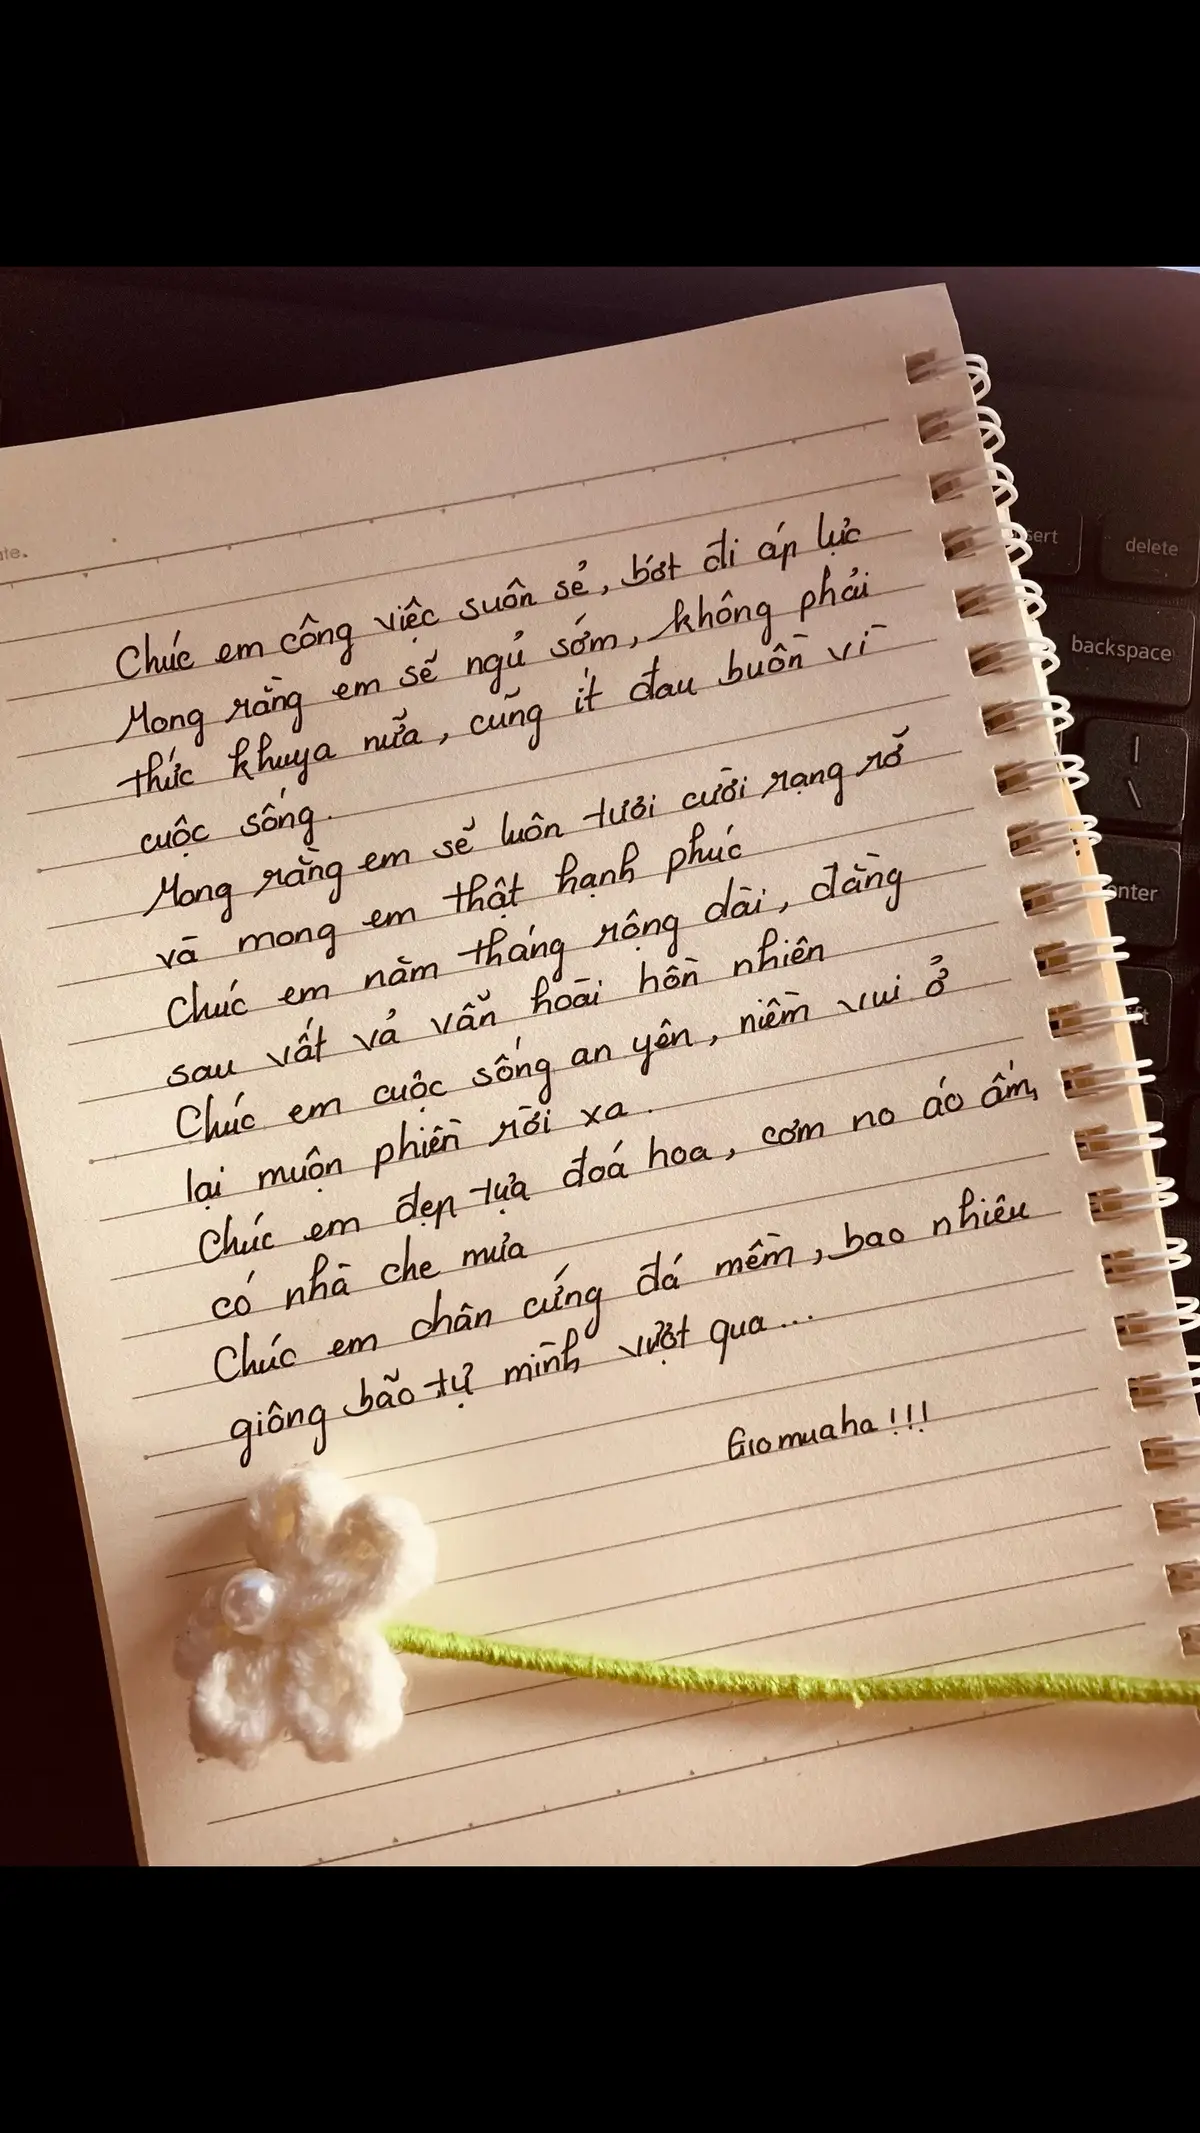 ate.
Chúc em công việc suôn sẻ, bớt đi áp lực
Mong rằng em sẽ ngủ sớm, không phải
thức khuya nữa, cũng ít đau buồn vì
cuộc sống.
Mong rằng em sẽ luôn tươi cười rạng rỡ
và mong em thật hạnh phúc
Chúc em năm tháng rộng dài, đằng
sau vất vả vẫn hoài hồn nhiên
Chúc em cuộc sống an yên, niềm vui ở
lại muộn phiền rời xa.
Chúc em đẹp tựa đoá hoa, cơm no áo ấm,
có nhà che mưa
Chúc em chân cứng đá mềm, bao nhiêu
giông bão tự mình vượt qua...
Giomuaha!!!
sert
delete
backspace
|
\
enter
ft